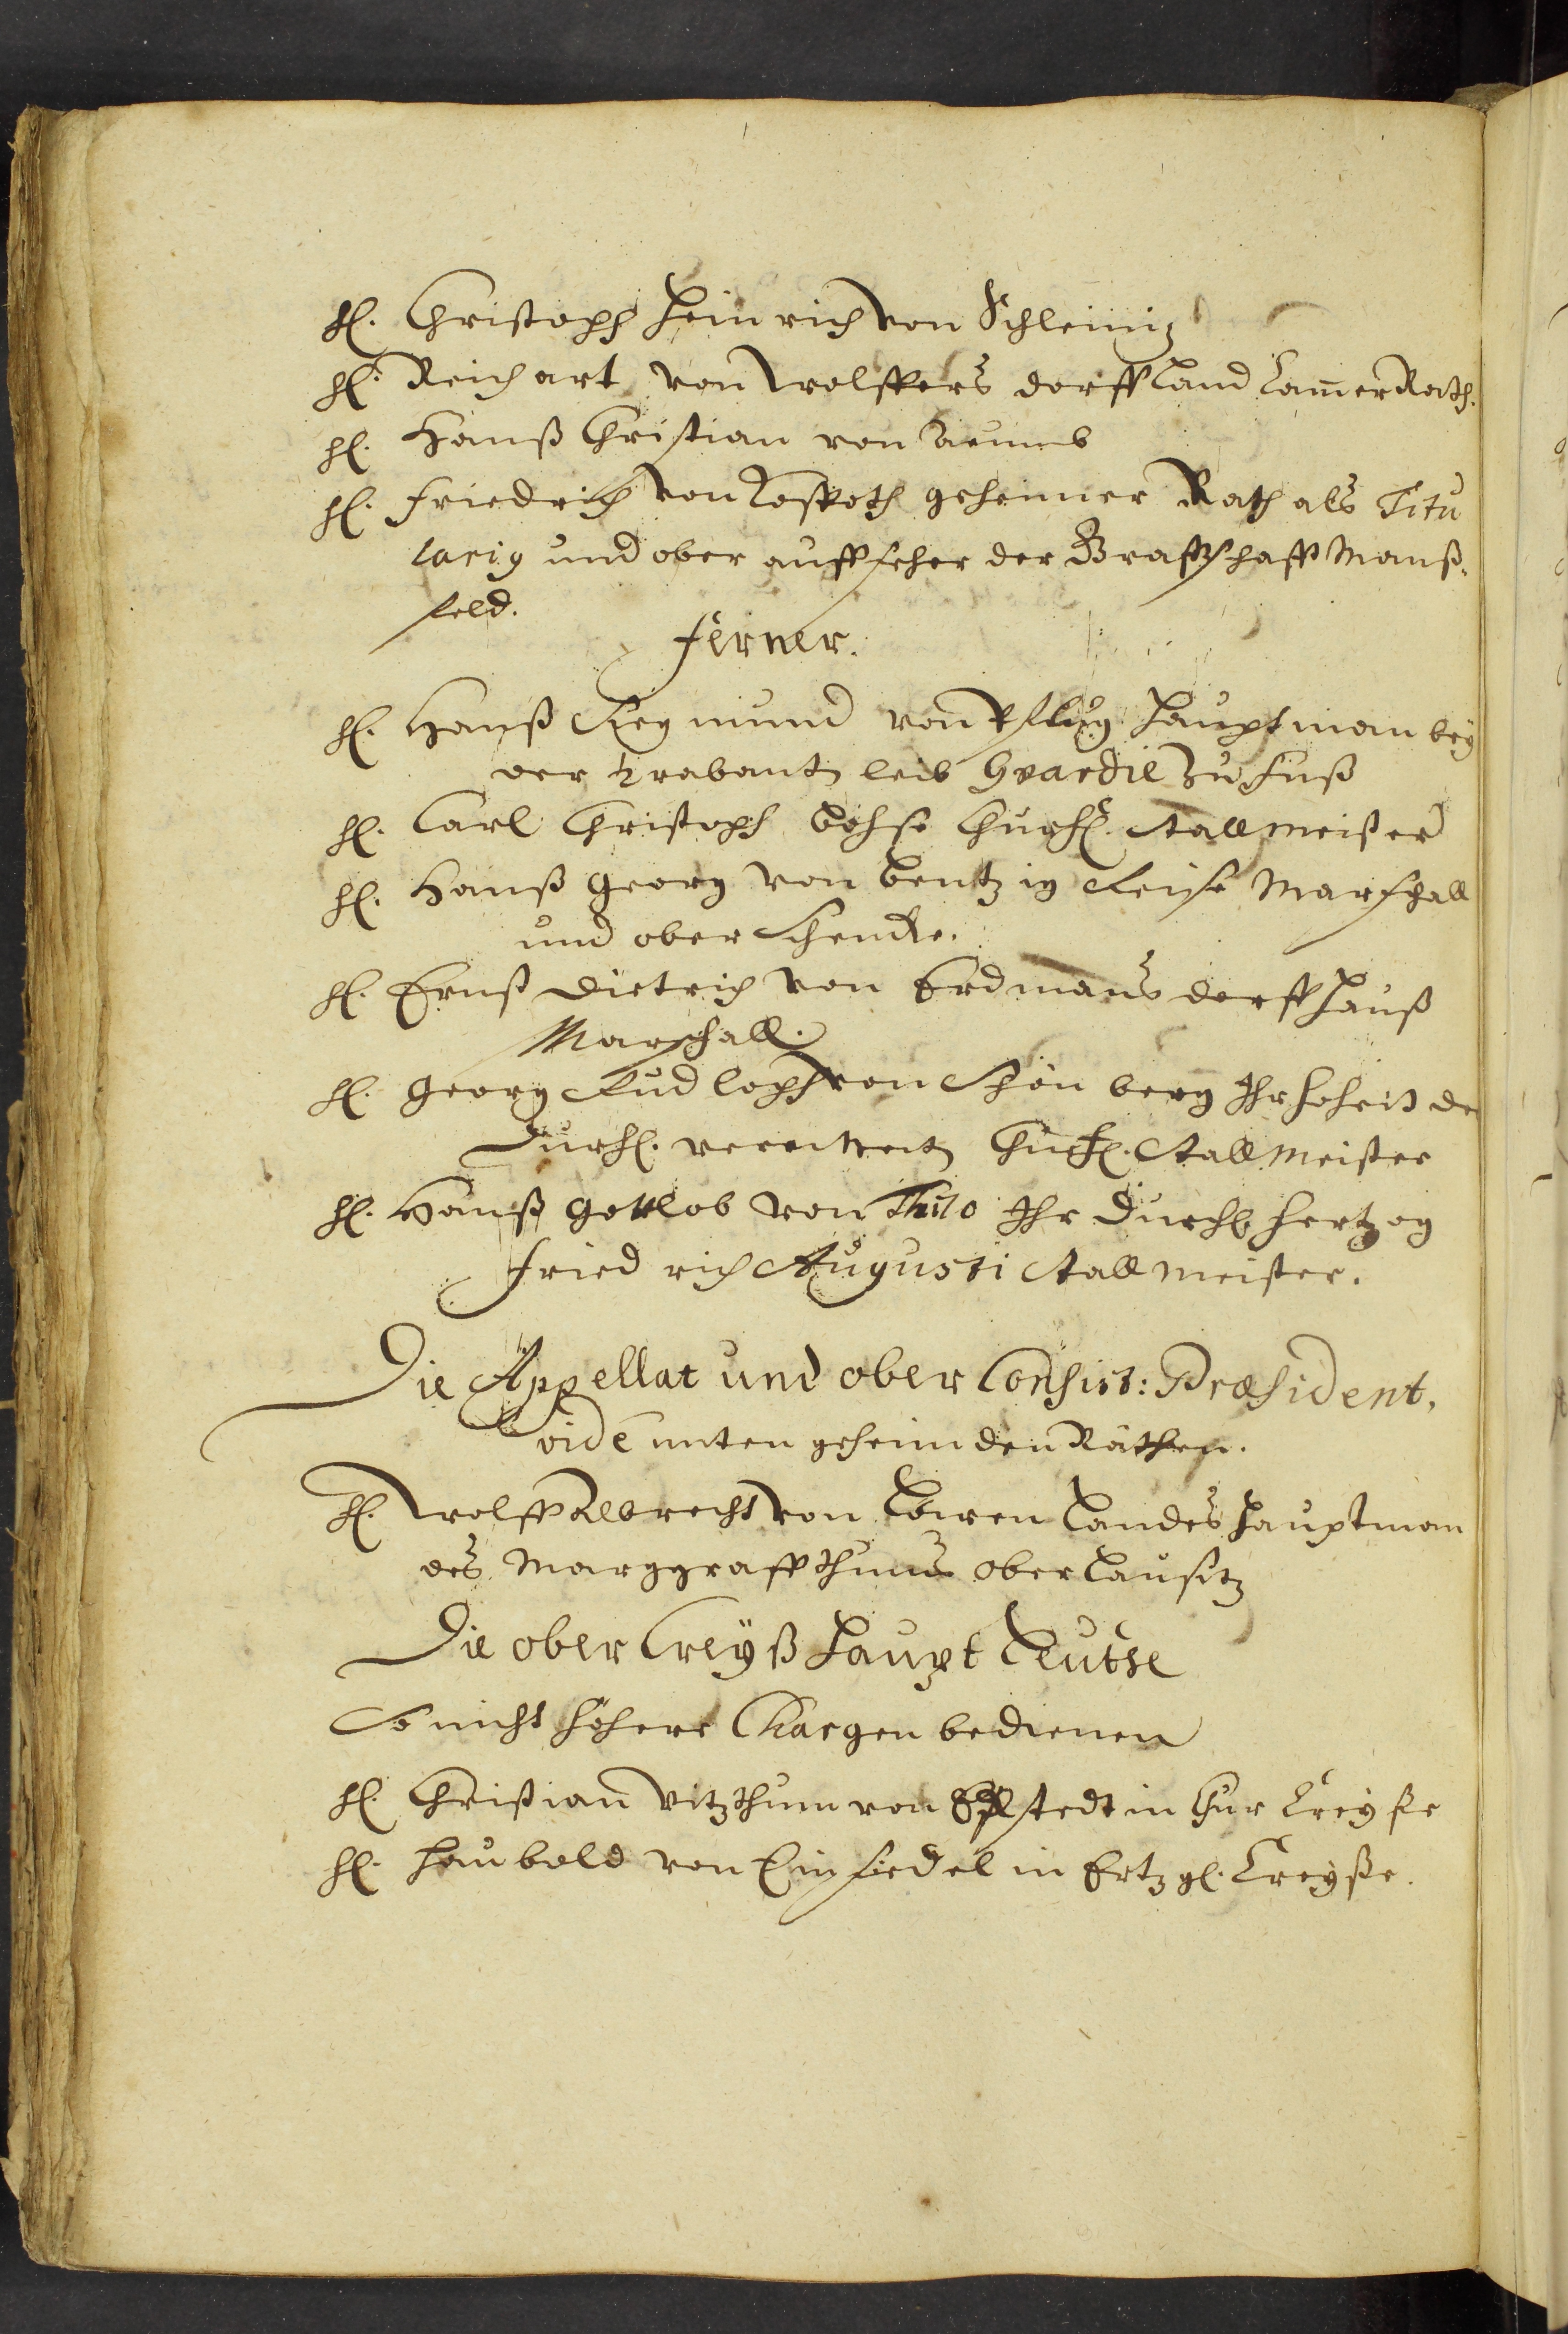 H. Christoph Heinrich von Schleinitz
H. Reichart von Wolffers dorff Land CammerRath.
H. Hanß Christian von
H. Friedrich von Koßpoth geheimer Rath als Titu
larig und ober auffseher der Graffschafft Manß-
feld.
Ferner.
H. Hanß Siegmund von Pflug Hauptman bey
der Trabant leib Gvardie zu Fuß
H. Carl Christoph Bohse Churf. Stallmeister
H. Hanß Georg von Bentzig Reise Marschall
und ober Schencke.
H. Ernst Dietrich von Erdmans dorff Hauß
Marschall.
H. Georg Rudloph von Schönberg Ihr Hoheit de
Durchl. Churf. Stallmeister
H. Hanß Gottlob von Thilo Ihr Durchl Hertzog
Friedrich Augusti Stallmeister.
Die Appellat und ober Consist: Præsident,
vide unten geheimden Räthen.
H. Wolff Albrecht von Löwen Landes Hauptman
des Marggraffthums ober Lausitz
Die ober Creyß Haupt Leuthe
So nicht höhere Chargen bedienen
H. Christian Vitzthum von Eckstedt in Chur Creyße
H. Haubold von Einsiedel in Ertzg. Creyße.